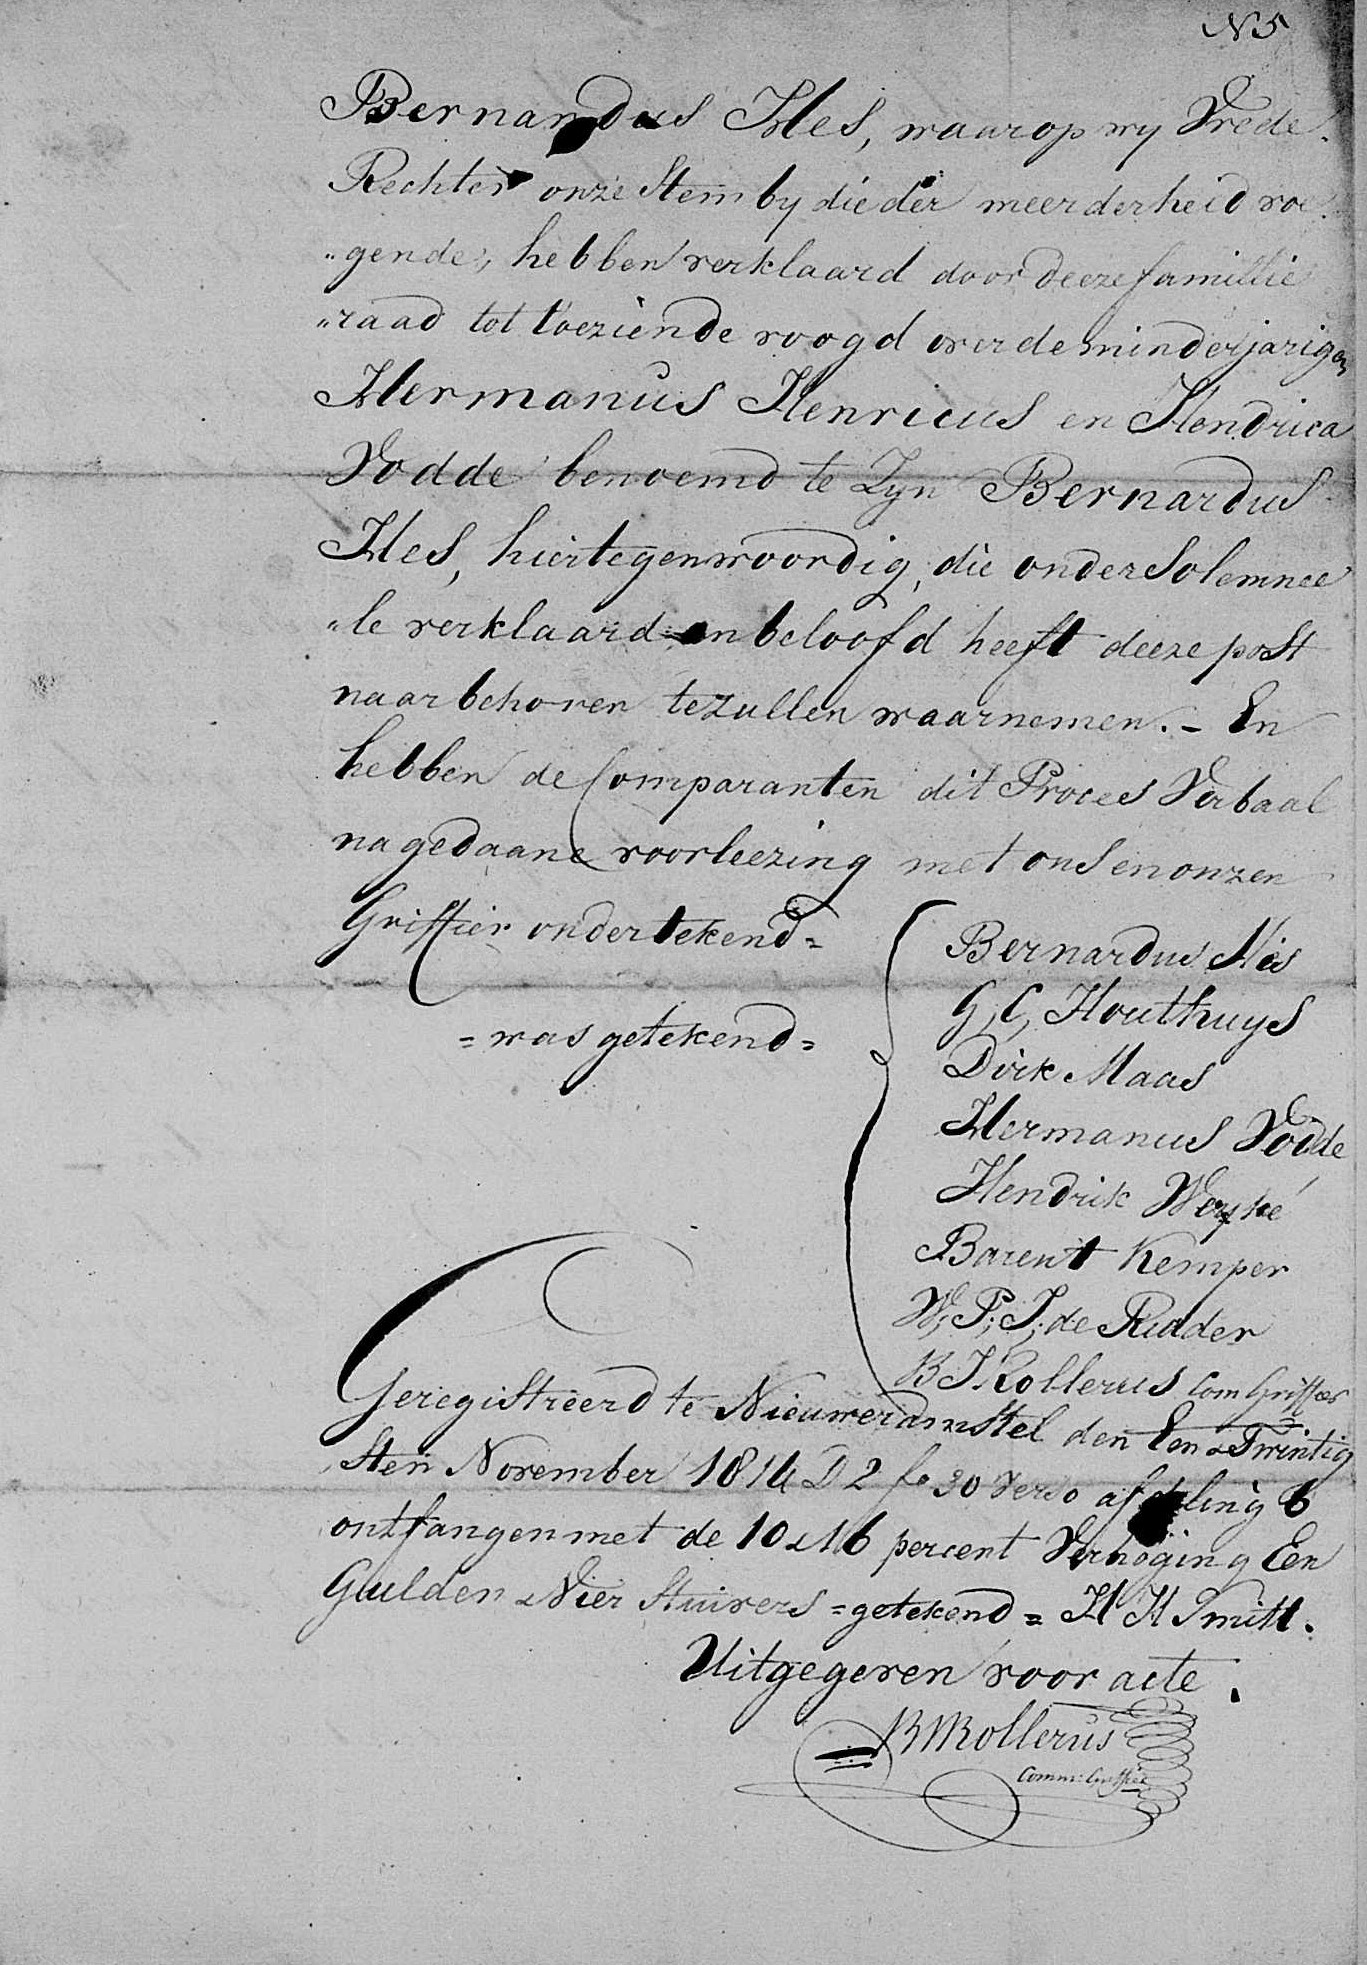 N 5
Bernardus Hes, waarop wy Vrede
Rechter onze Stem by die der meerderheid voe
„gende, hebben verklaard door deeze familie
„raad tot toeziende voogd over de minderjarigen
Hermanus Henricus en Hendrica
Vodde benoemd te Zyn Bernardus
Hes, hiertegenwoordig, die onder Solemnee
„le verklaard en beloofd heeft deeze post
naar behoren te zullen waarnemen. – En
hebben de Comparanten dit Proces Verbaal
na gedaane voorleezing met ons en onzen
Griffier ondertekend =
= was getekend =
Bernardus Hes
G, C, Houthuys
Dirk Maas
Hermanus Vodde
Hendrik
Barent Kemper
W; P; J; de Ridder
B J Rollerus Com Griffier
Geregistreerd te Nieuweramstel den Een & Twintig
Sten November 1814 D 2 fo 30 Verso afdeling 6
ontfangen met de 10 & 16 percent Verhoging Een
Gulden & Vier Stuivers = getekend = H H Smitt.
Uitgegeven voor acte.
Rollerus
Comm: Griffier